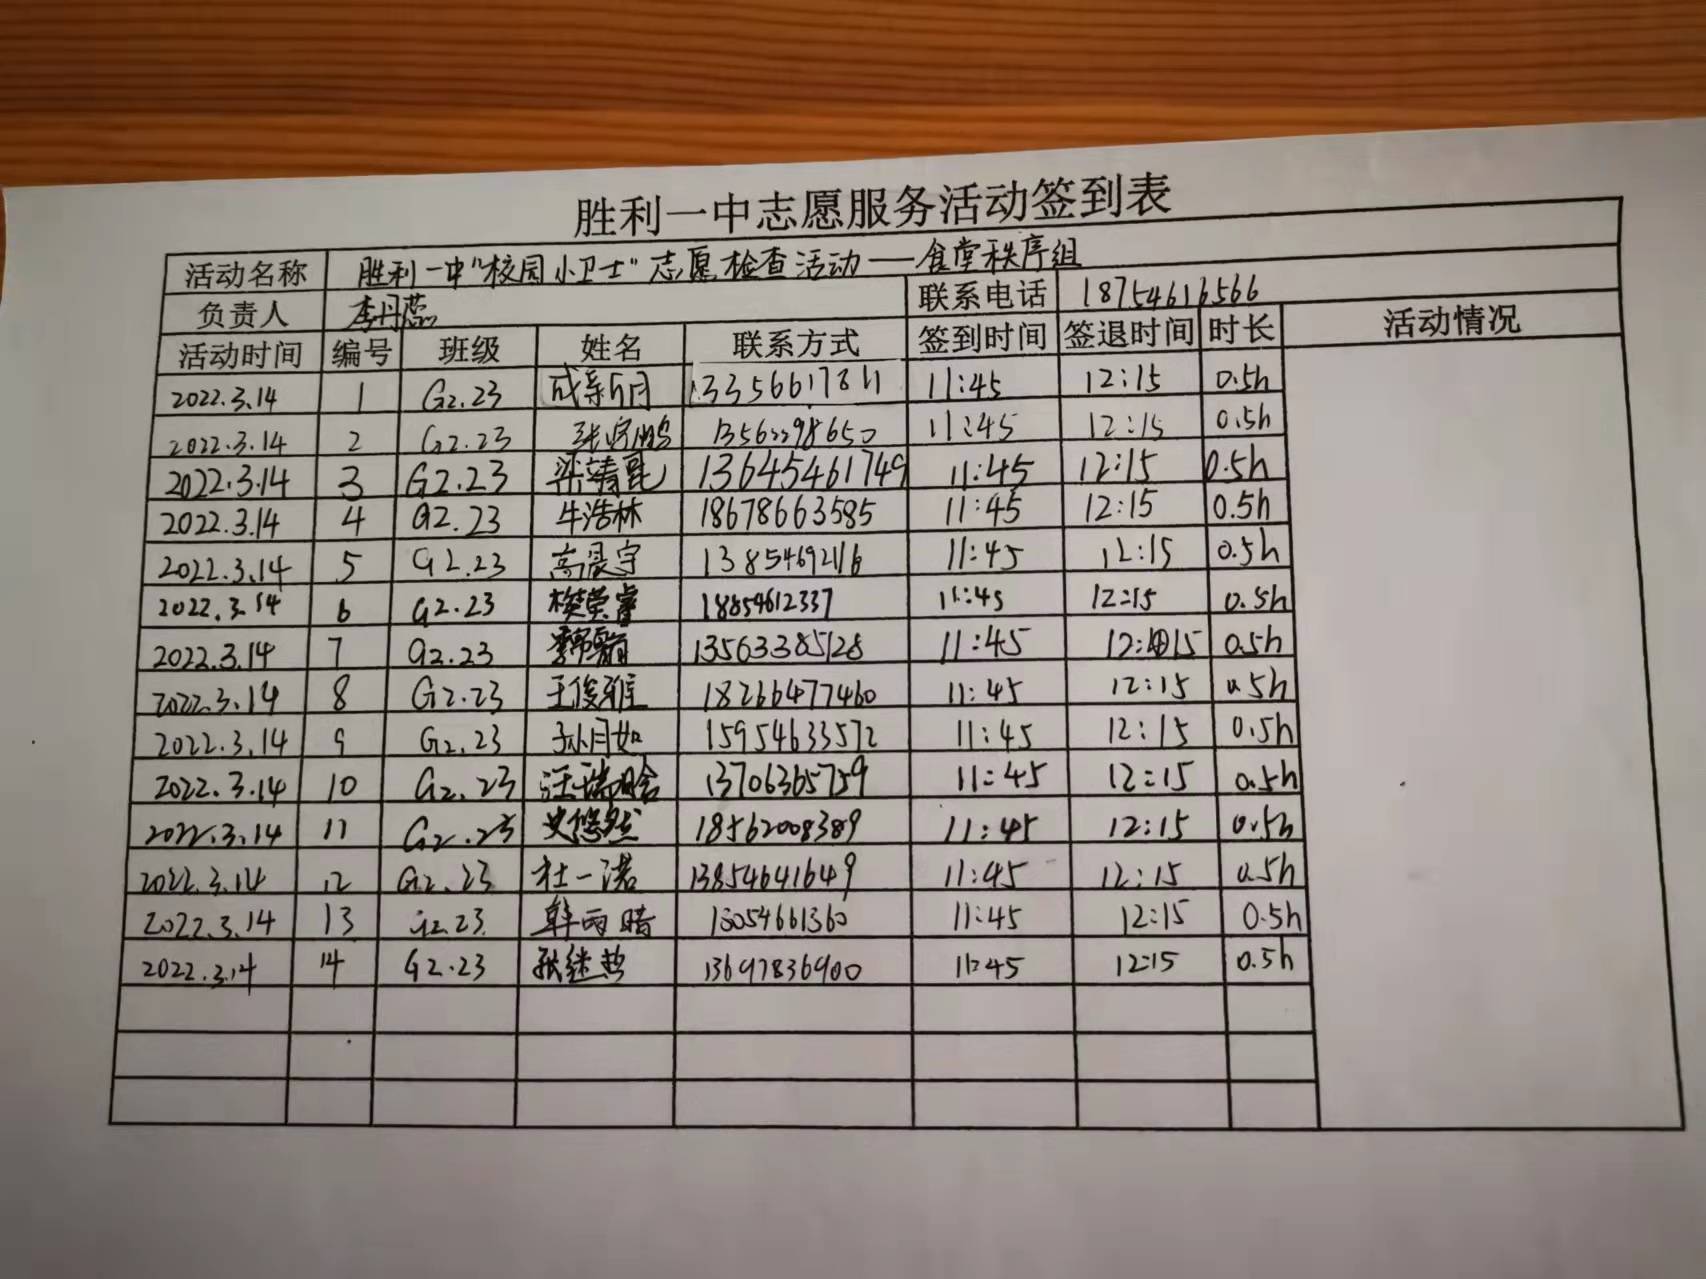 胜利一中志愿服务活动签到表
活动名称 胜利一中"校园小卫士"志愿检查活动——食堂秩序组
负责人 李丹蕊 联系电话 18754616566
活动时间 编号 班级 姓名 联系方式 签到时间 签退时间 时长 活动情况
2022.3.14 1 G2.23 成新月 13356617811 11:45 12:15 0.5h
2022.3.14 2 G2.23 13562298650 11:45 12:15 0.5h
2022.3.14 3 G2.23 梁靖昆 13645461749 11:45 12:15 0.5h
2022.3.14 4 G2.23 牛浩林 18678663585 11:45 12:15 0.5h
2022.3.14 5 G2.23 高晨宇 13854692116 11:45 12:15 0.5h
2022.3.14 6 G2.23 樊荣睿 18854612337 11:45 12:15 0.5h
2022.3.14 7 G2.23 13563385128 11:45 12:15 0.5h
2022.3.14 8 G2.23 王俊雅 18266477460 11:45 12:15 0.5h
2022.3.14 9 G2.23 孙月如 15954633572 11:45 12:15 0.5h
2022.3.14 10 G2.23 汪瑞晗 13706365759 11:45 12:15 0.5h
2022.3.14 11 G2.23 史悠然 18562008389 11:45 12:15 0.5h
2022.3.14 12 G2.23 杜一诺 13854641649 11:45 12:15 0.5h
2022.3.14 13 G2.23 韩雨晴 13054661360 11:45 12:15 0.5h
2022.3.14 14 G2.23 张继哲 13697836900 11:45 12:15 0.5h